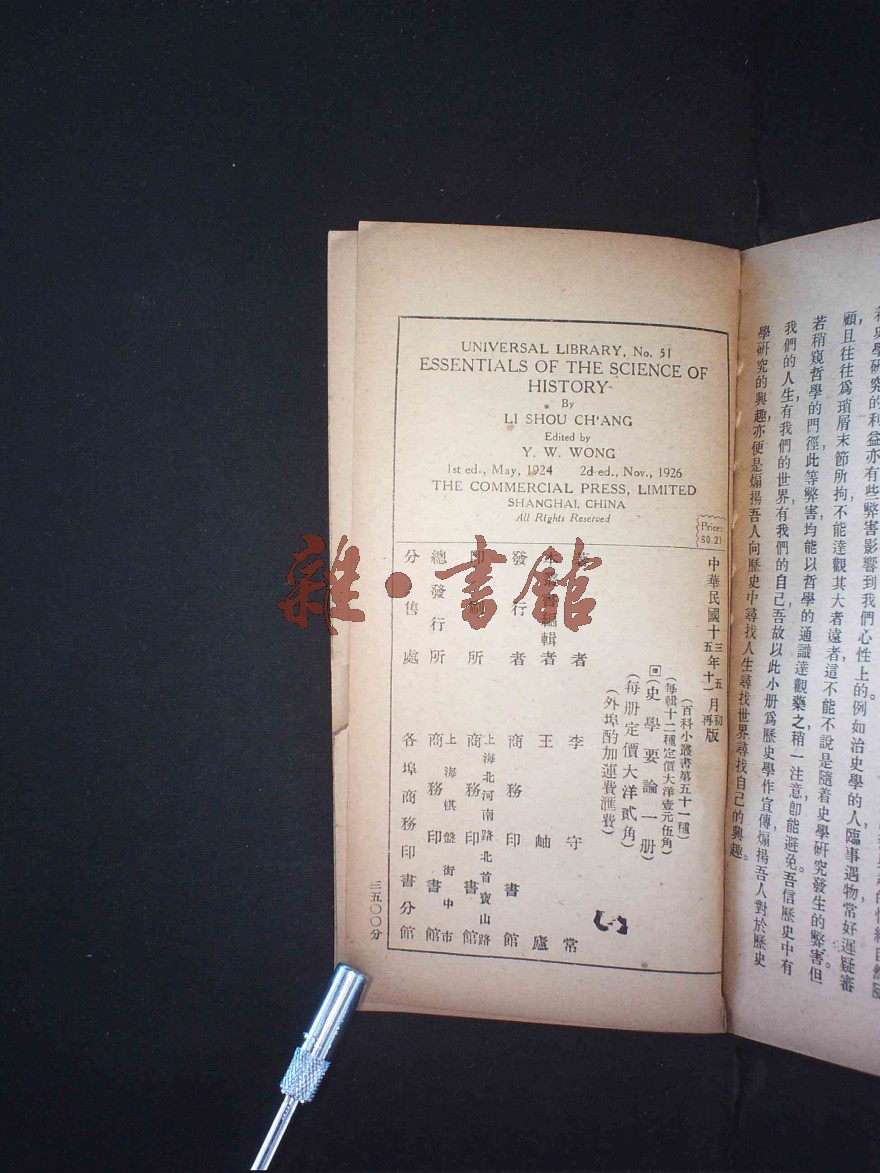 UNIVERSAL LIBRARY, No. 51
ESSENTIALS OF THE SCIENCE OF
HISTORY
By
LI SHOU CH'ANG
Edited by
Y. W. WONG
1st ed., May, 1924 2d ed., Nov., 1926
THE COMMERCIAL PRESS, LIMITED
SHANGHAI, CHINA
All Rights Reserved
Price:
$0.21
中華民國十三年五月初版
五年十一月再版
(百科小叢書第五十一種)
(每輯十二種定價大洋壹元伍角)
(史學要論一册)
(每册定價大洋貳角)
(外埠酌加運費滙費)
著者 李守常
本叢書編輯者 王岫廬
發行者 商務印書館
印刷所 上海北河南路北首寶山路
商務印書館
總發行所 上海棋盤街中市
商務印書館
分售處 各埠商務印書分館
三五〇〇分
雜·書館
顧且往往爲瑣屑末節所拘,不能達觀其大者遠者這不能不說是隨着史學研究發生的弊害但
若稍窺哲學的門徑此等弊害均能以哲學的通識達觀藥之稍一注意卽能避免。吾信歷史中有
我們的人生有我們的世界有我們的自己吾故以此小册爲歷史學作宣傳煽揚吾人對於歷史
學研究的興趣亦便是煽揚吾人向歷史中尋找人生尋找世界尋找自己的興趣。
史學研究的利益亦有些弊害影響到我們心性上的例如治史學的人臨事遇物常好遲疑審